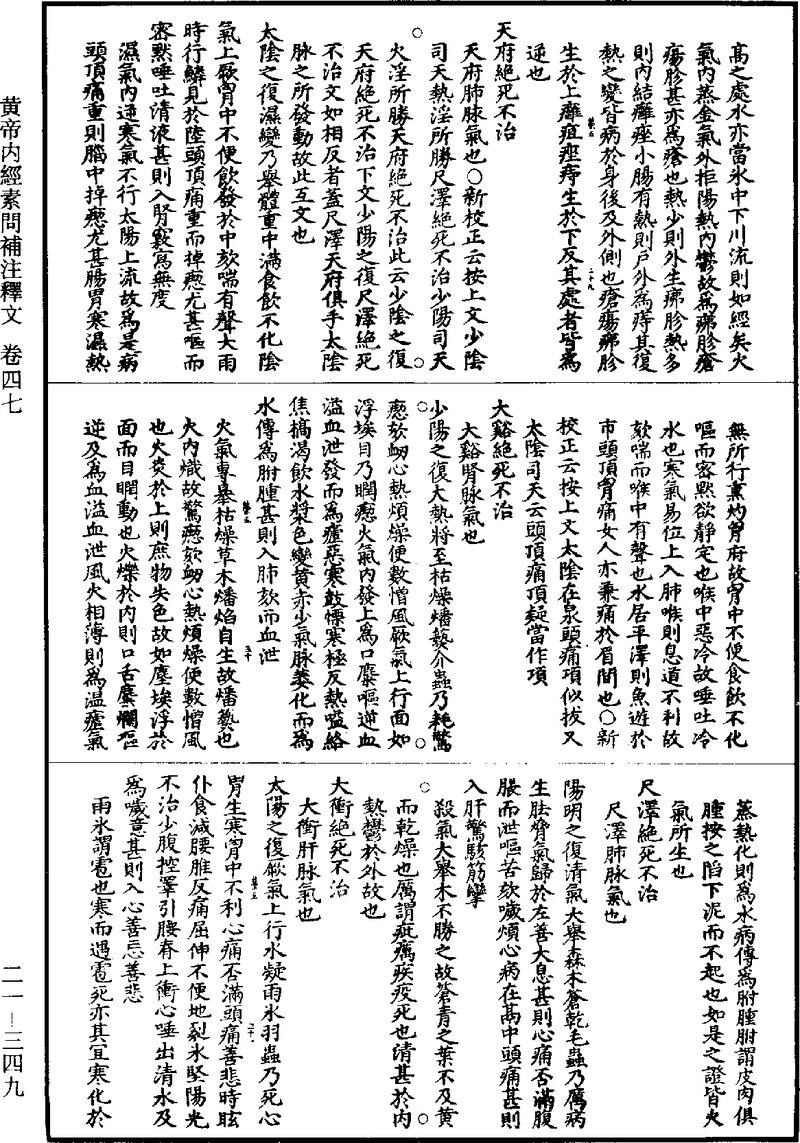 高之處水亦當氷中下川流則如經矣火
氣內蒸金氣外拒陽熱內鬱故爲疿胗瘡
瘍胗甚亦爲瘡也熱少則外生疿胗熱多
則內結癰痤小腸有熱則戶外爲痔其復
熱之變皆病於身後及外側也瘡瘍疿胗
生於上癰疽痤痔生於下反其處者皆爲
逆也
天府絕死不治
天府肺脉氣也○新校正云按上文少陰
司天熱淫所勝尺澤絕死不治少陽司天
火淫所勝天府絕死不治此云少陰之復
天府絕死不治下文少陽之復尺澤絕死
不治文如相反者蓋尺澤天府俱手太陰
脉之所發動故此互文也
太陰之復濕變乃舉體重中滿食飲不化陰
氣上厥胷中不便飲發於中欬喘有聲大雨
時行鱗見於陸頭頂痛重而掉瘛尤甚嘔而
密默唾吐清液甚則入腎竅寫無度
濕氣內逆寒氣不行太陽上流故爲是病
頭頂痛重則腦中掉瘛尤甚腸胃寒濕熱
無所行熏灼胷府故胷中不便食飲不化
嘔而密默欲靜定也喉中惡冷故唾吐冷
水也寒氣易位上入肺喉則息道不利故
欬喘而喉中有聲也水居平澤則魚遊於
市頭頂䯒痛女人亦兼痛於眉間也○新
校正云按上文太陰在泉頭痛項似拔又
太陰司天云頭頂痛頂疑當作項
大谿絕死不治
大谿腎脉氣也
少陽之復大熱將至枯燥燔爇介蟲乃耗驚
瘛欬衂心熱煩燥便數憎風厥氣上行面如
浮埃目乃瞤瘛火氣內發上爲口糜嘔逆血
溢血泄發而爲瘧惡寒鼓慄寒極反熱嗌絡
焦槁渴飲水漿色變黃赤少氣脉萎化而爲
水傳爲胕腫甚則入肺欬而血泄
火氣專暴枯燥草木燔焰自生故燔爇也
火內熾故驚瘛欬衂心熱煩燥便數憎風
也火炎於上則庶物失色故如塵埃浮於
面而目瞤動也火爍於內則口舌糜爛嘔
逆及爲血溢血泄風火相薄則爲温瘧氣
蒸熱化則爲水病傳爲胕腫胕謂皮肉俱
腫按之陷下泥而不起也如是之證皆火
氣所生也
尺澤絕死不治
尺澤肺脉氣也
陽明之復清氣大舉森木蒼乾毛蟲乃厲病
生胠脅氣歸於左善大息甚則心痛否滿腹
脹而泄嘔苦欬噦煩心病在鬲中頭痛甚則
入肝驚駭筋攣
殺氣大舉木不勝之故蒼青之葉不及黃
而乾燥也厲謂疵厲疾疫死也清甚於內
熱鬱於外故也
大衝絕死不治
大衝肝脉氣也
太陽之復厥氣上行水凝雨氷羽蟲乃死心
胃生寒胷中不利心痛否滿頭痛善悲時眩
仆食減腰脽反痛屈伸不便地裂氷堅陽光
不治少腹控睾引腰脊上衝心唾出清水及
爲噦噫甚則入心善忘善悲
雨氷謂雹也寒而遇雹死亦其宜寒化於
黃帝內經素問補注釋文　卷四七
二一—三四九